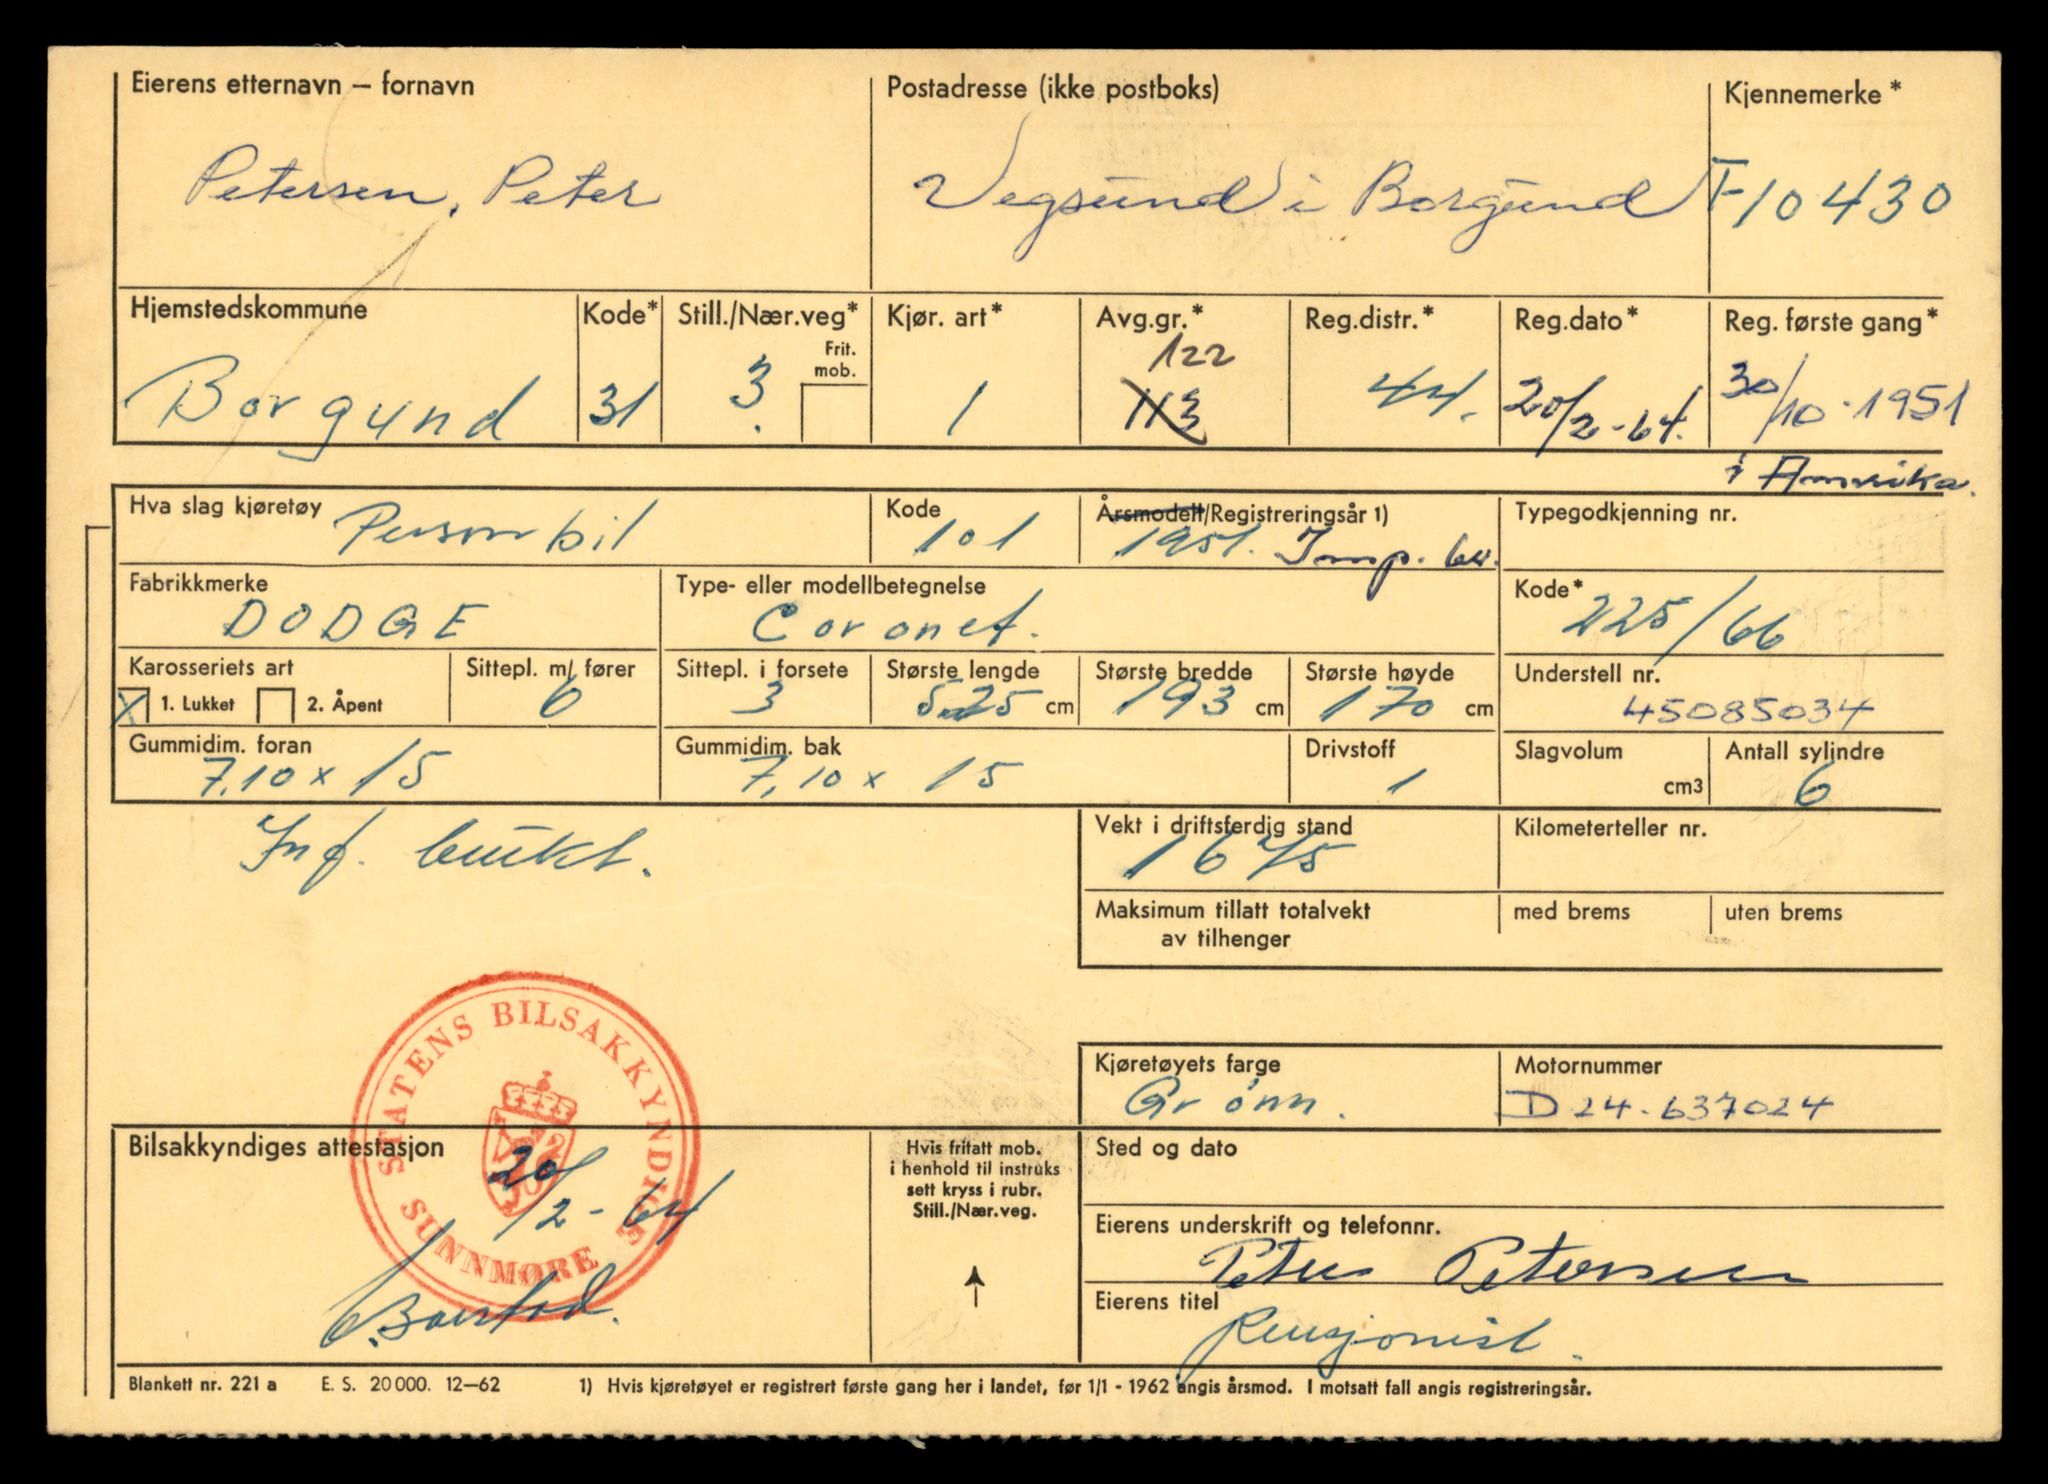 Eierens etternavn – fornavn Postadresse (ikke postboks) Kjennemerke*
Petersen, Peter Vegsund i Borgund T-10430
Hjemstedskommune Kode* Still./Nær.veg* Kjør. art* Avg.gr.* Reg.distr.* Reg.dato* Reg. første gang*
Frit. mob. 122
Borgund 31 3. 1 113 44. 20/2-64. 30/10-1951
i Amerika.
Hva slag kjøretøy Kode Årsmodell/Registreringsår 1) Typegodkjenning nr.
Personbil 101 1951. Imp. 64.
Fabrikkmerke Type- eller modellbetegnelse Kode*
DODGE Coronet. 225/66
Karosseriets art Sittepl. m/ fører Sittepl. i forsete Største lengde Største bredde Største høyde Understell nr.
X 1. Lukket 2. Åpent 6 3 525 cm 193 cm 170 cm 45085034
Gummidim. foran Gummidim. bak Drivstoff Slagvolum Antall sylindre
7,10 x 15 7,10 x 15 1 cm3 6
Inf. bukt.
Vekt i driftsferdig stand Kilometerteller nr.
1675
Maksimum tillatt totalvekt med brems uten brems
av tilhenger
STATENS BILSAKKYNDIGE
SUNNMØRE
Kjøretøyets farge Motornummer
Grønn. D24-637024
Bilsakkyndiges attestasjon Hvis fritatt mob. Sted og dato
i henhold til instruks
sett kryss i rubr.
Still./Nær.veg.
20/2-64
Eierens underskrift og telefonnr.
Peter Petersen
Eierens titel
Pensjonist.
Blankett nr. 221 a E. S. 20 000. 12–62 1) Hvis kjøretøyet er registrert første gang her i landet, før 1/1 - 1962 angis årsmod. I motsatt fall angis registreringsår.